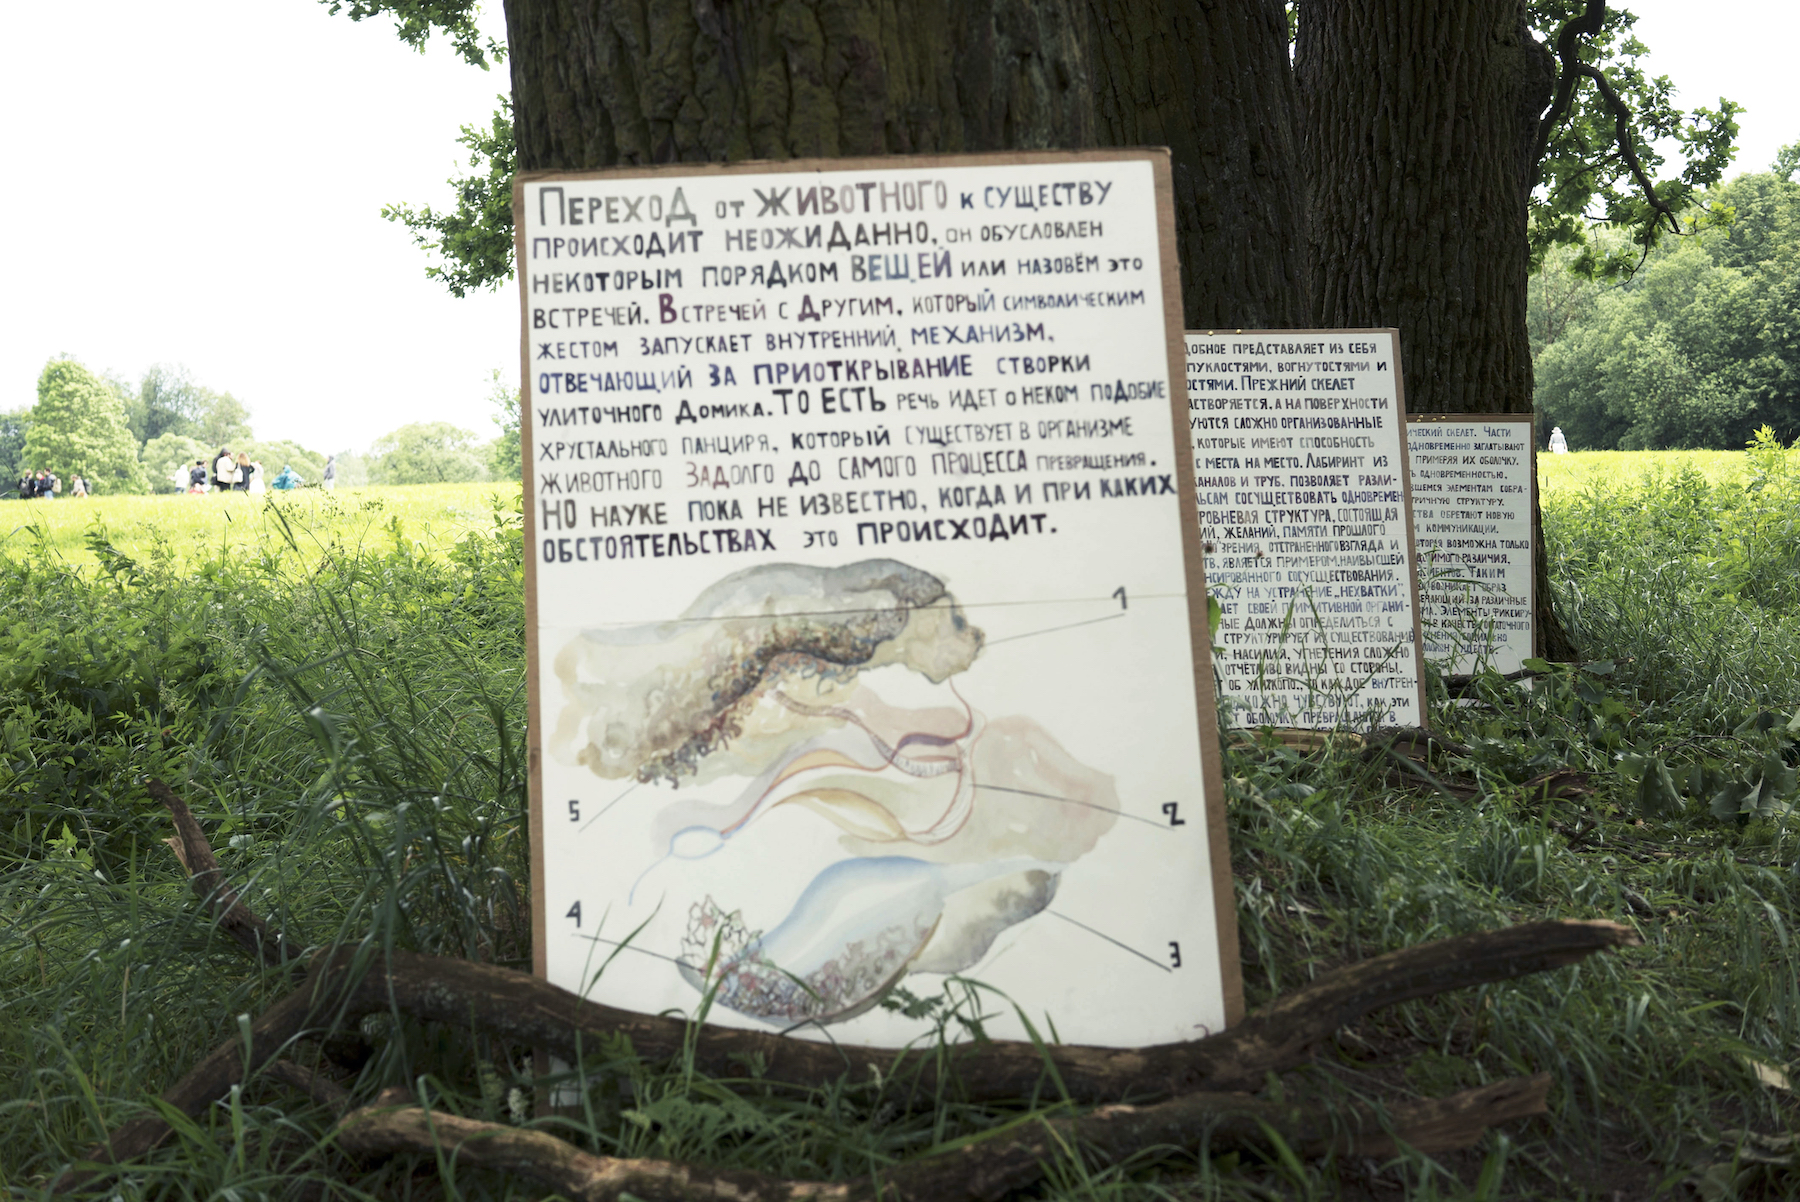 Переход от ЖИВОТНОГО к СУЩЕСТВУ
ПРОИСХОДИТ НЕОЖИДАННО, он ОБУСЛОВЛЕН
НЕКОТОРЫМ ПОРЯДКОМ ВЕЩЕЙ или НАЗОВЁМ ЭТО
ВСТРЕЧЕЙ. ВСТРЕЧЕЙ С ДРУГИМ, КОТОРЫЙ СИМВОЛИЧЕСКИМ
ЖЕСТОМ ЗАПУСКАЕТ ВНУТРЕННИЙ МЕХАНИЗМ,
ОТВЕЧАЮЩИЙ ЗА ПРИОТКРЫВАНИЕ СТВОРКИ
УЛИТОЧНОГО ДОМИКА. ТО ЕСТЬ РЕЧЬ ИДЕТ О НЕКОМ ПОДОБИЕ
ХРУСТАЛЬНОГО ПАНЦИРЯ, КОТОРЫЙ СУЩЕСТВУЕТ В ОРГАНИЗМЕ
ЖИВОТНОГО ЗАДОЛГО ДО САМОГО ПРОЦЕССА ПРЕВРАЩЕНИЯ.
НО НАУКЕ ПОКА НЕ ИЗВЕСТНО, КОГДА И ПРИ КАКИХ
ОБСТОЯТЕЛЬСТВАХ ЭТО ПРОИСХОДИТ.
1
2
3
4
5
ДОБНОЕ ПРЕДСТАВЛЯЕТ ИЗ СЕБЯ
ПУКЛОСТЯМИ, ВОГНУТОСТЯМИ И
ОСТЯМИ. ПРЕЖНИЙ СКЕЛЕТ
АСТВОРЯЕТСЯ, А НА ПОВЕРХНОСТИ
УЮТСЯ СЛОЖНО ОРГАНИЗОВАННЫЕ
, КОТОРЫЕ ИМЕЮТ СПОСОБНОСТЬ
С МЕСТА НА МЕСТО. ЛАБИРИНТ ИЗ
КАНАЛОВ И ТРУБ, ПОЗВОЛЯЕТ РАЗЛИ-
ЛЬСАМ СОСУЩЕСТВОВАТЬ ОДНОВРЕМЕН
РОВНЕВАЯ СТРУКТУРА, СОСТОЯЩАЯ
ИЙ, ЖЕЛАНИЙ, ПАМЯТИ ПРОШЛОГО
ЗРЕНИЯ, ОТСТРАНЕННОГО ВЗГЛЯДА И
ТВ, ЯВЛЯЕТСЯ ПРИМЕРОМ, НАИВЫСШЕЙ
НСИРОВАННОГО СОСУЩЕСТВОВАНИЯ.
ЕЖДУ НА УСТРАНЕНИЕ „НЕХВАТКИ",
АЕТ СВОЕЙ ПРИМИТИВНОЙ ОРГАНИ-
НЫЕ ДОЛЖНЫ ОПРЕДЕЛИТЬСЯ С
СТРУКТУРИРУЕТ ИХ СУЩЕСТВОВАНИЕ
И, НАСИЛИЯ, УГНЕТЕНИЯ СЛОЖНО
ОТЧЕТЛИВО ВИДНЫ СО СТОРОНЫ.
ВНУТРЕН-
ЧУВСТВУЮТ, КАК ЭТИ
В
ИЧЕСКИЙ СКЕЛЕТ. ЧАСТИ
ОДНОВРЕМЕННО ЗАГЛАТЫВАЮТ
ПРИМЕРЯЯ ИХ ОБОЛОЧКУ.
ТЬ ОДНОВРЕМЕННОСТЬЮ,
ВШЕМСЯ ЭЛЕМЕНТАМ СОБРА-
РИЧНУЮ СТРУКТУРУ.
СТВА ОБРЕТАЮТ НОВУЮ
М КОММУНИКАЦИИ.
ОТОРАЯ ВОЗМОЖНА ТОЛЬКО
ДИМОГО РАЗЛИЧИЯ,
ТАКИМ
ОБРАЗ
ЗА РАЗЛИЧНЫЕ
ЭЛЕМЕНТЫ ФИКСИРУ-
В КАЧЕСТВЕ